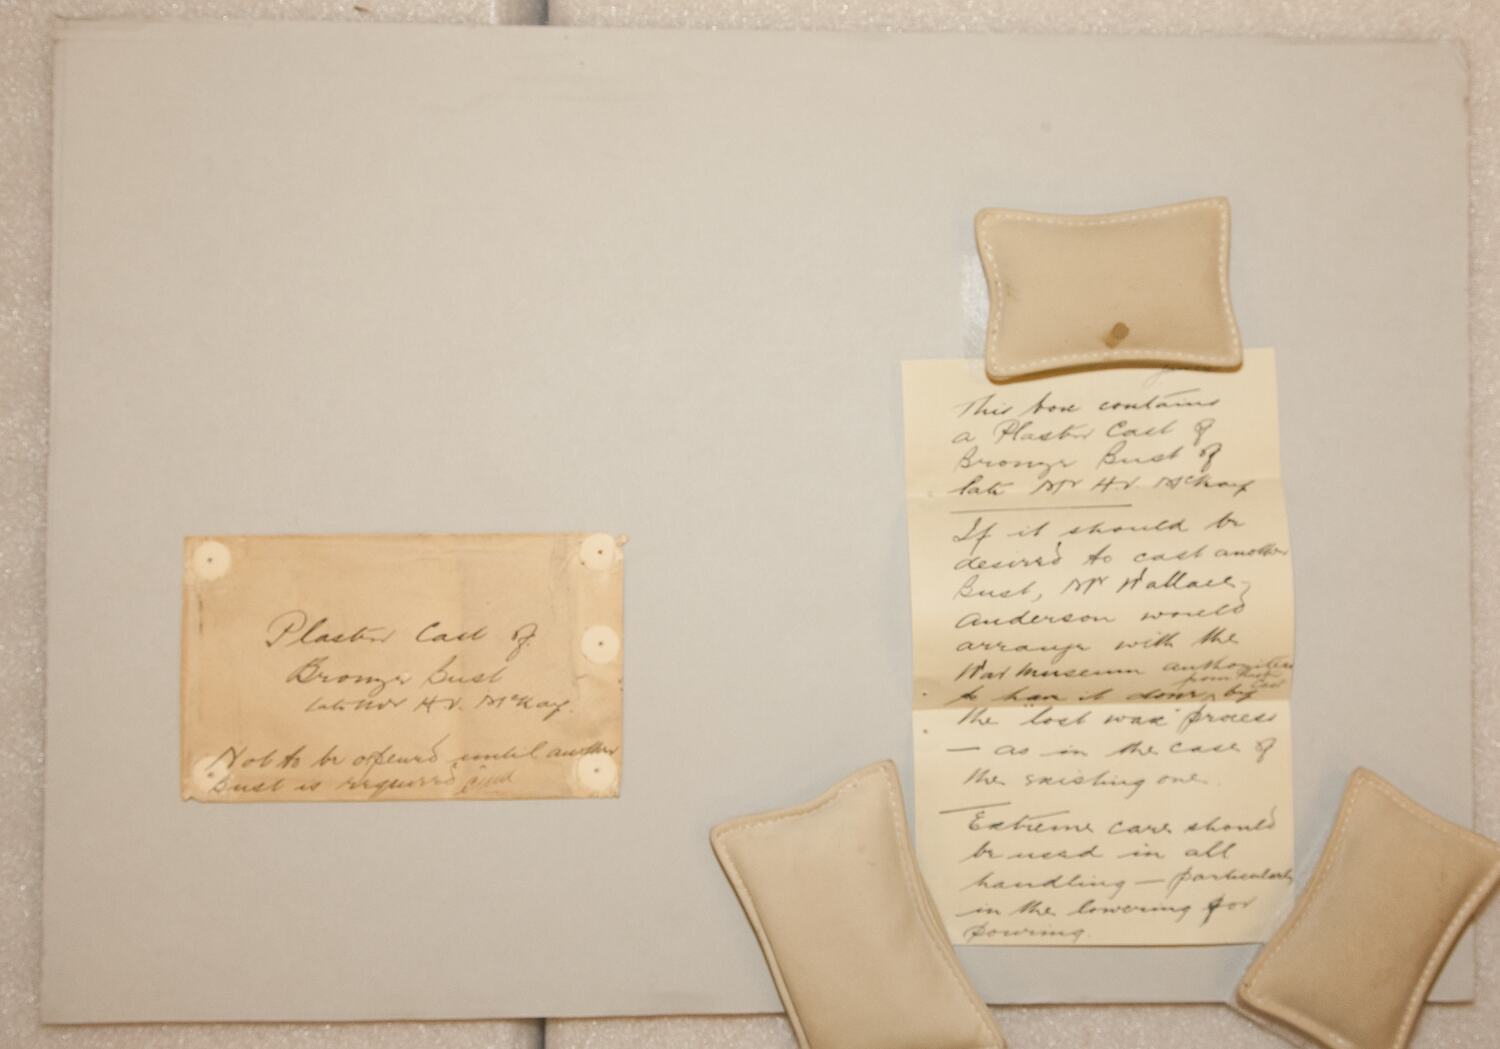 Plaster Cast of
Bronze Bust
late Mr H.V. McKay.
Not to be opened until another
Bust is required
This box contains
a Plaster Cast of
Bronze Bust of
late Mr H.V. McKay
If it should be
desired to cast another
Bust, Mr Wallace
Anderson would
arrange with the
War Museum authorities
to have it done, by
from this
Cast
the "lost wax" process
— as in the case of
the existing one.
Extreme care should
be used in all
handling — particularly
in the lowering for
pouring.